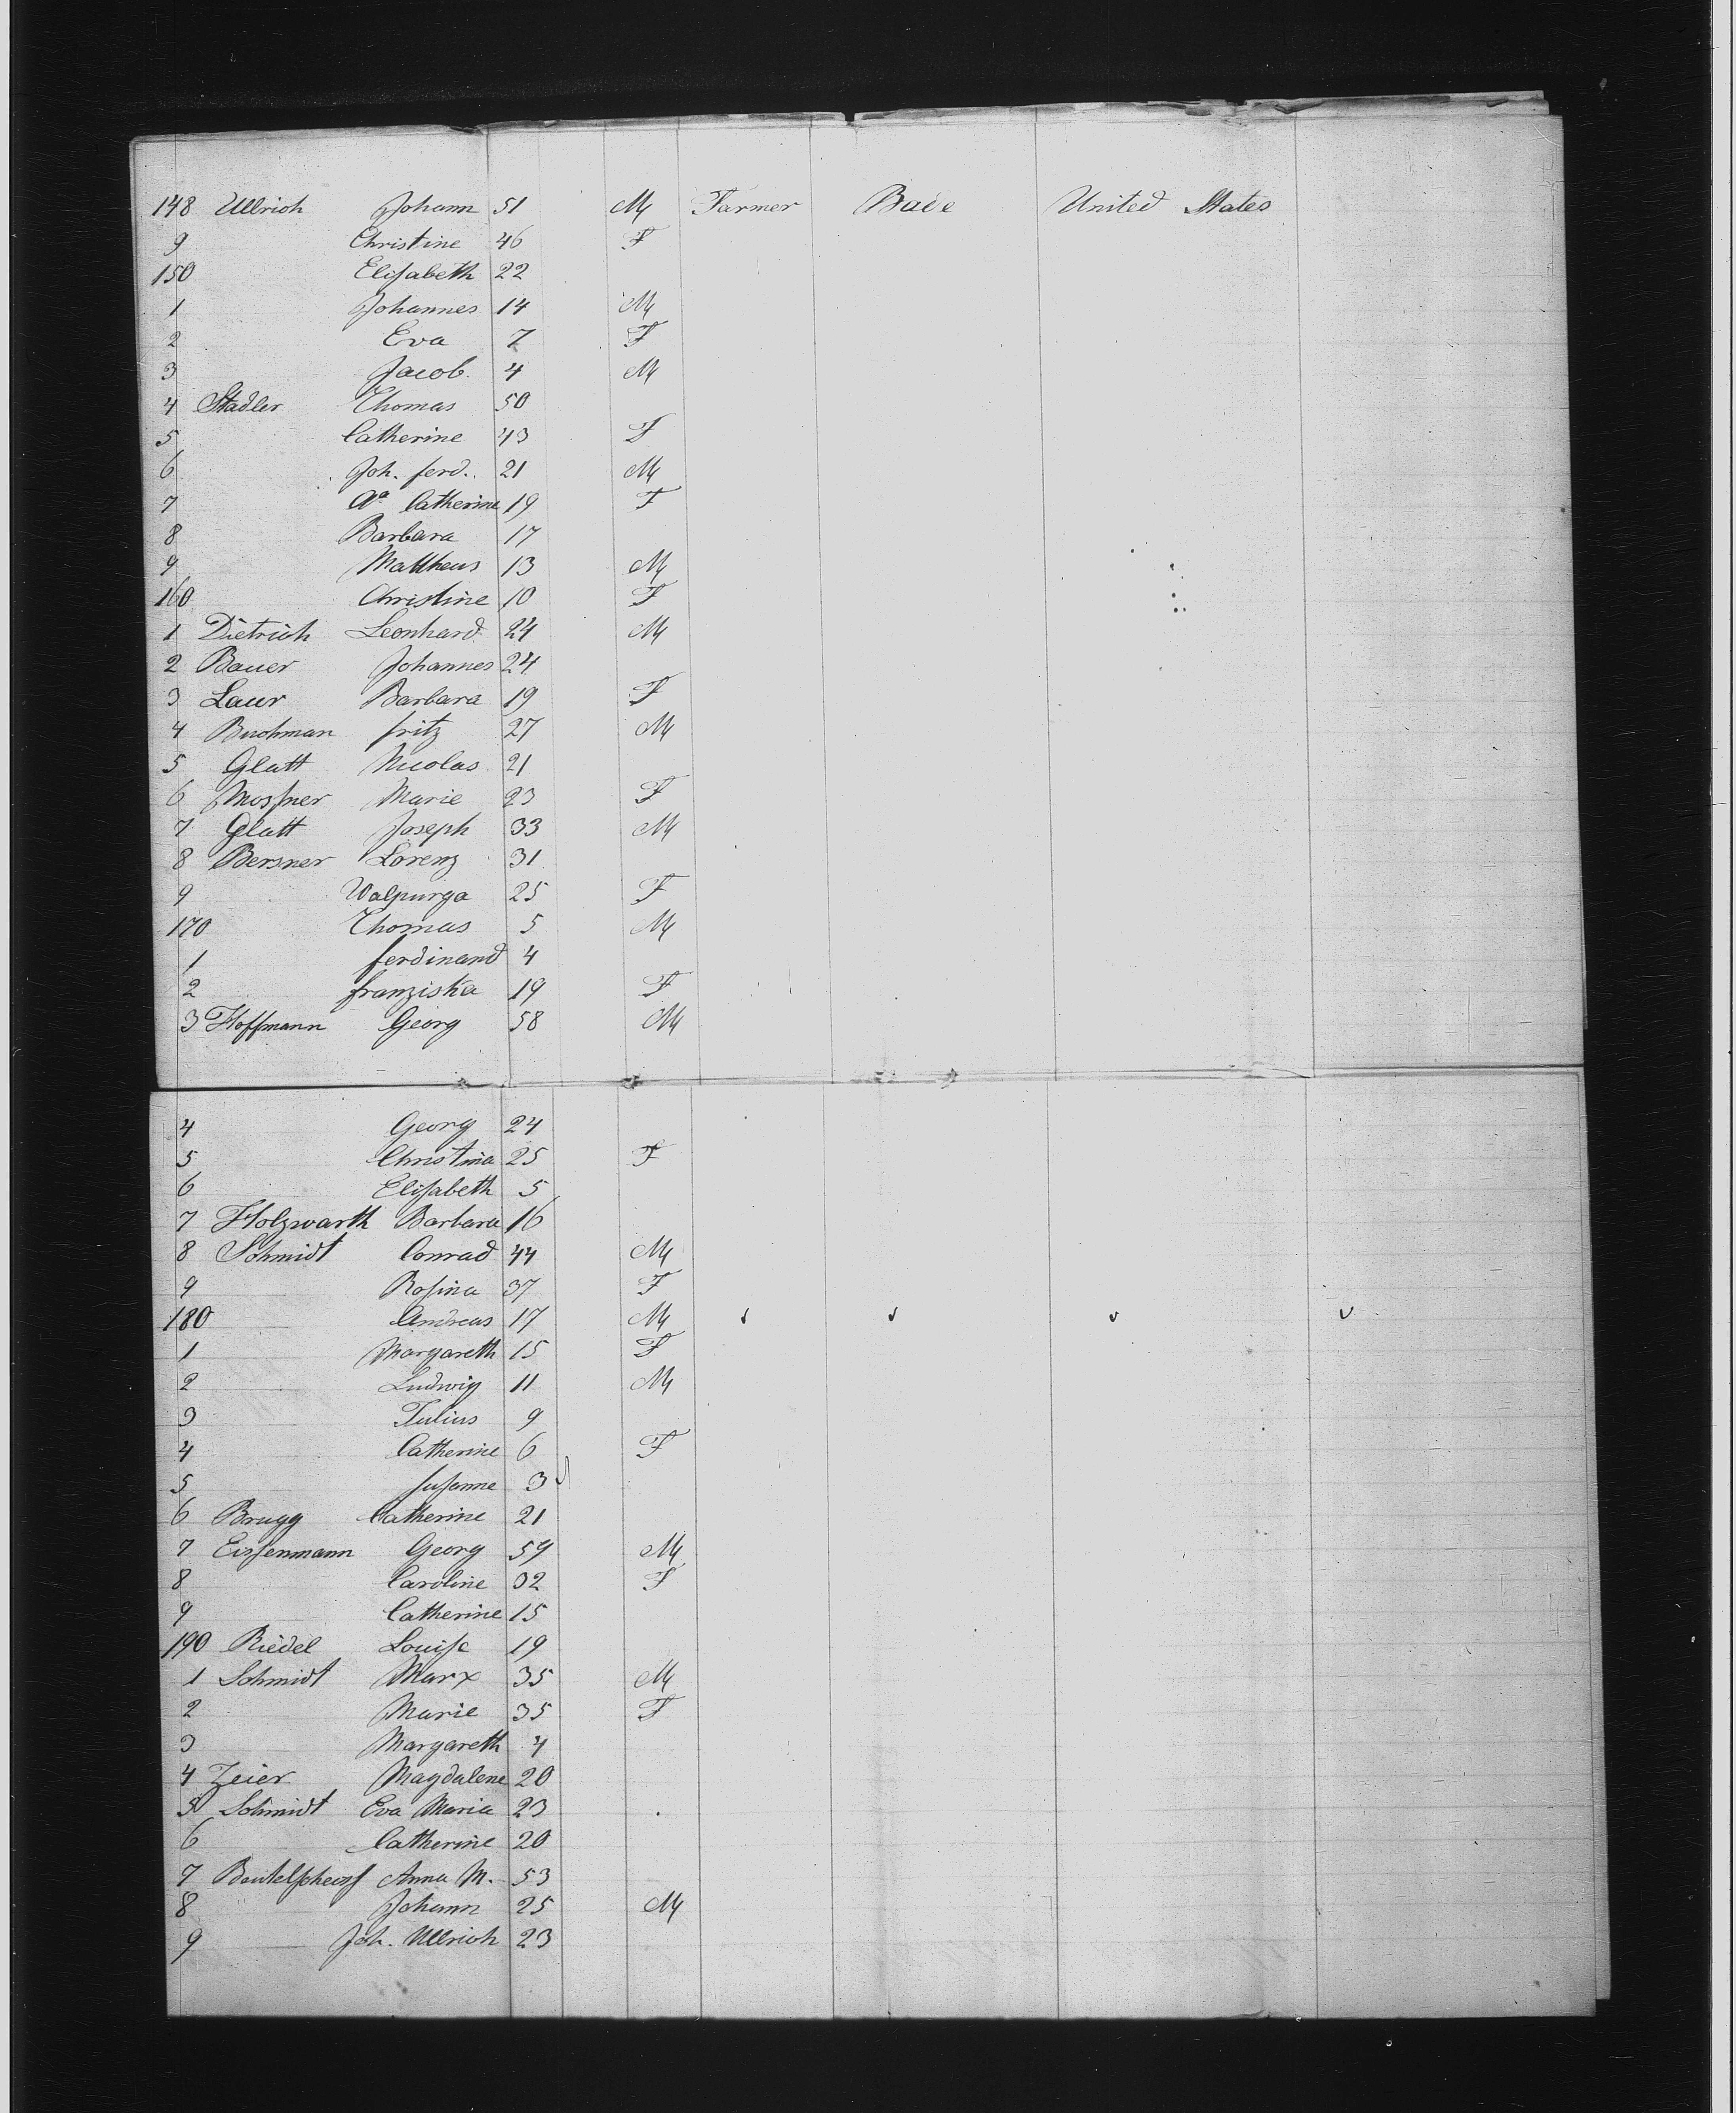 148 Ullrich Johann 51 M Farmer Bade United States
9 Christine 46 F
150 Elisabeth 22
1 Johannes 14 M
2 Eva 7 F
3 Jacob 4 M
4 Stadler Thomas 50
5 Catherine 43 F
6 Joh. ferd. 21 M
7 Aª Catherine 19 F
8 Barbara 17
9 Mattheus 13 M
160 Christine 10 F
1 Dietrich Leonhard 24 M
2 Bauer Johannes 24
3 Laur Barbara 19 F
4 Buchman fritz 27 M
5 Glatt Nicolas 21
6 Mossner Marie 23 F
7 Glatt Joseph 33 M
8 Bersner Lorenz 31
9 Walpurga 25 F
170 Thomas 5 M
1 ferdinand 4
2 franziska 19 F
3 Hoffmann Georg 58 M
4 Georg 24
5 Christina 25 F
6 Elisabeth 5
7 Holzwarth Barbara 16
8 Schmidt Conrad 44 M
9 Rosina 37 F
180 Andreas 17 M
1 Margareth 15 F
2 Ludwig 11 M
3 Julius 9
4 Catherine 6 F
5 Susanne 3
6 Brugg Catherine 21
7 Eissenmann Georg 59 M
8 Caroline 32 F
9 Catherine 15
190 Riedel Louise 19
1 Schmidt Marx 35 M
2 Marie 35 F
3 Margareth 4
4 Zeier Magdalene 20
5 Schmidt Eva Maria 23
6 Catherine 20
7 Anna M. 53
8 Johann 25 M
9 Joh. Ullrich 23